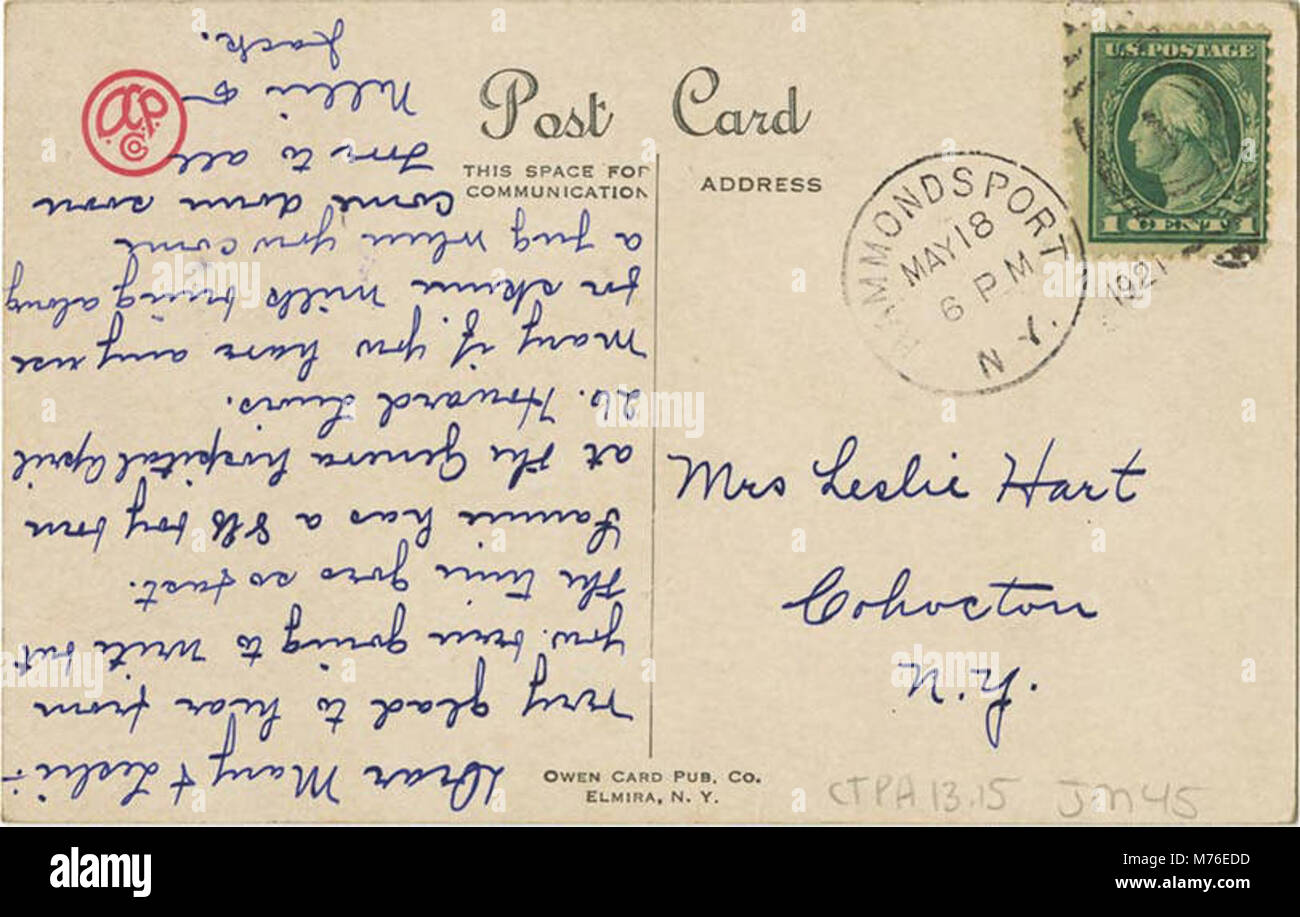 Post Card
THIS SPACE FOR
COMMUNICATION
ADDRESS
U.S. POSTAGE
1 CENT 1
HAMMONDSPORT
MAY 18
6 PM
1921
N.Y.
Mrs Leslie Hart
Cohocton
N.Y.
Dear Mary + Leslie:-
Very glad to hear from
you. been going to write but
the time goes so fast.
Fannie has a 8 lb boy born
at the Geneva hospital April
26. Howard Lewis.
Mary if you have any use
for skim milk bring along
a jug when you come
Come down soon
to all
Nellie &
Jack.
OWEN CARD PUB. CO.
ELMIRA, N. Y.
CTPA 13.15 JM45
alamy
Image ID: M76EDD
www.alamy.com